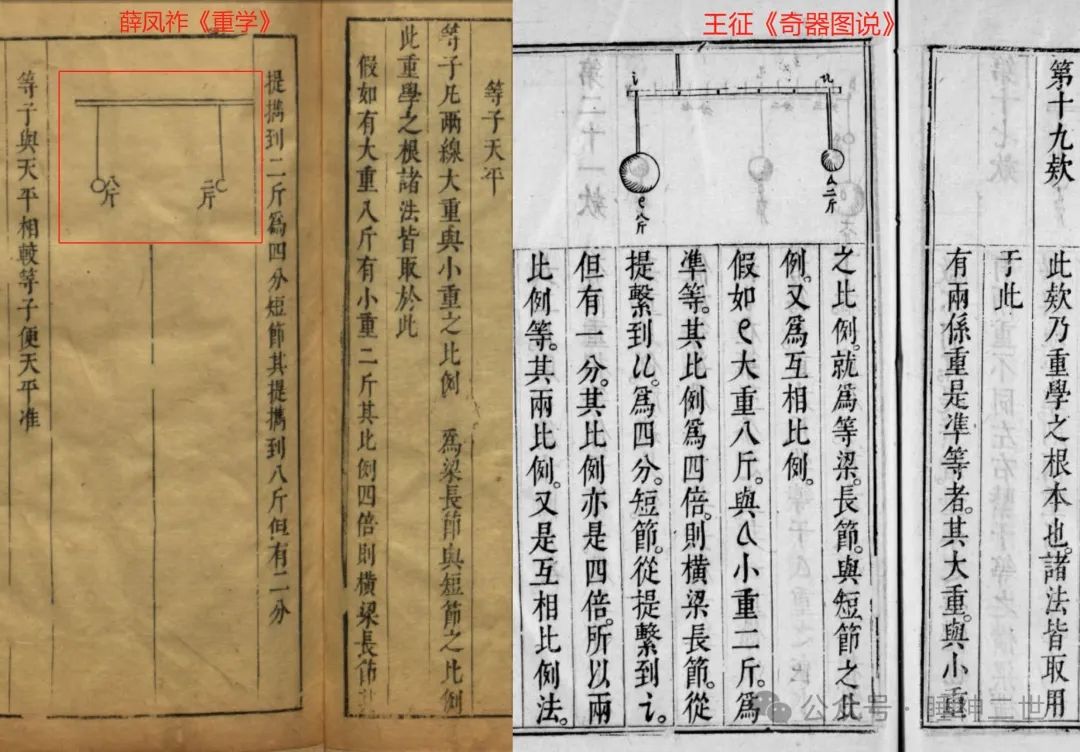 薛凤祚《重学》
等子天平
等子凡兩線大重與小重之比例 為梁長節與短節之比例
此重學之根諸法皆取於此
假如有大重八斤有小重二斤其比例四倍則橫梁長節
提擕到二斤為四分短節其提擕到八斤但有二分
二斤
八斤
等子與天平相較等子便天平准
王征《奇器图说》
第十九欵
此欵乃重學之根本也。諸法皆取用
于此
有兩係重是準等者。其大重與小重
之比例。就為等梁。長節。與短節之比
例。又為互相比例。
假如e大重八斤。與a小重二斤。為
準等。其比例為四倍。則橫梁長節。從
提繫到u。為四分。短節。從提繫到i。
但有一分。其比例亦是四倍。所以兩
比例等。其兩比例。又是互相比例法。
a二斤
e八斤
公众号